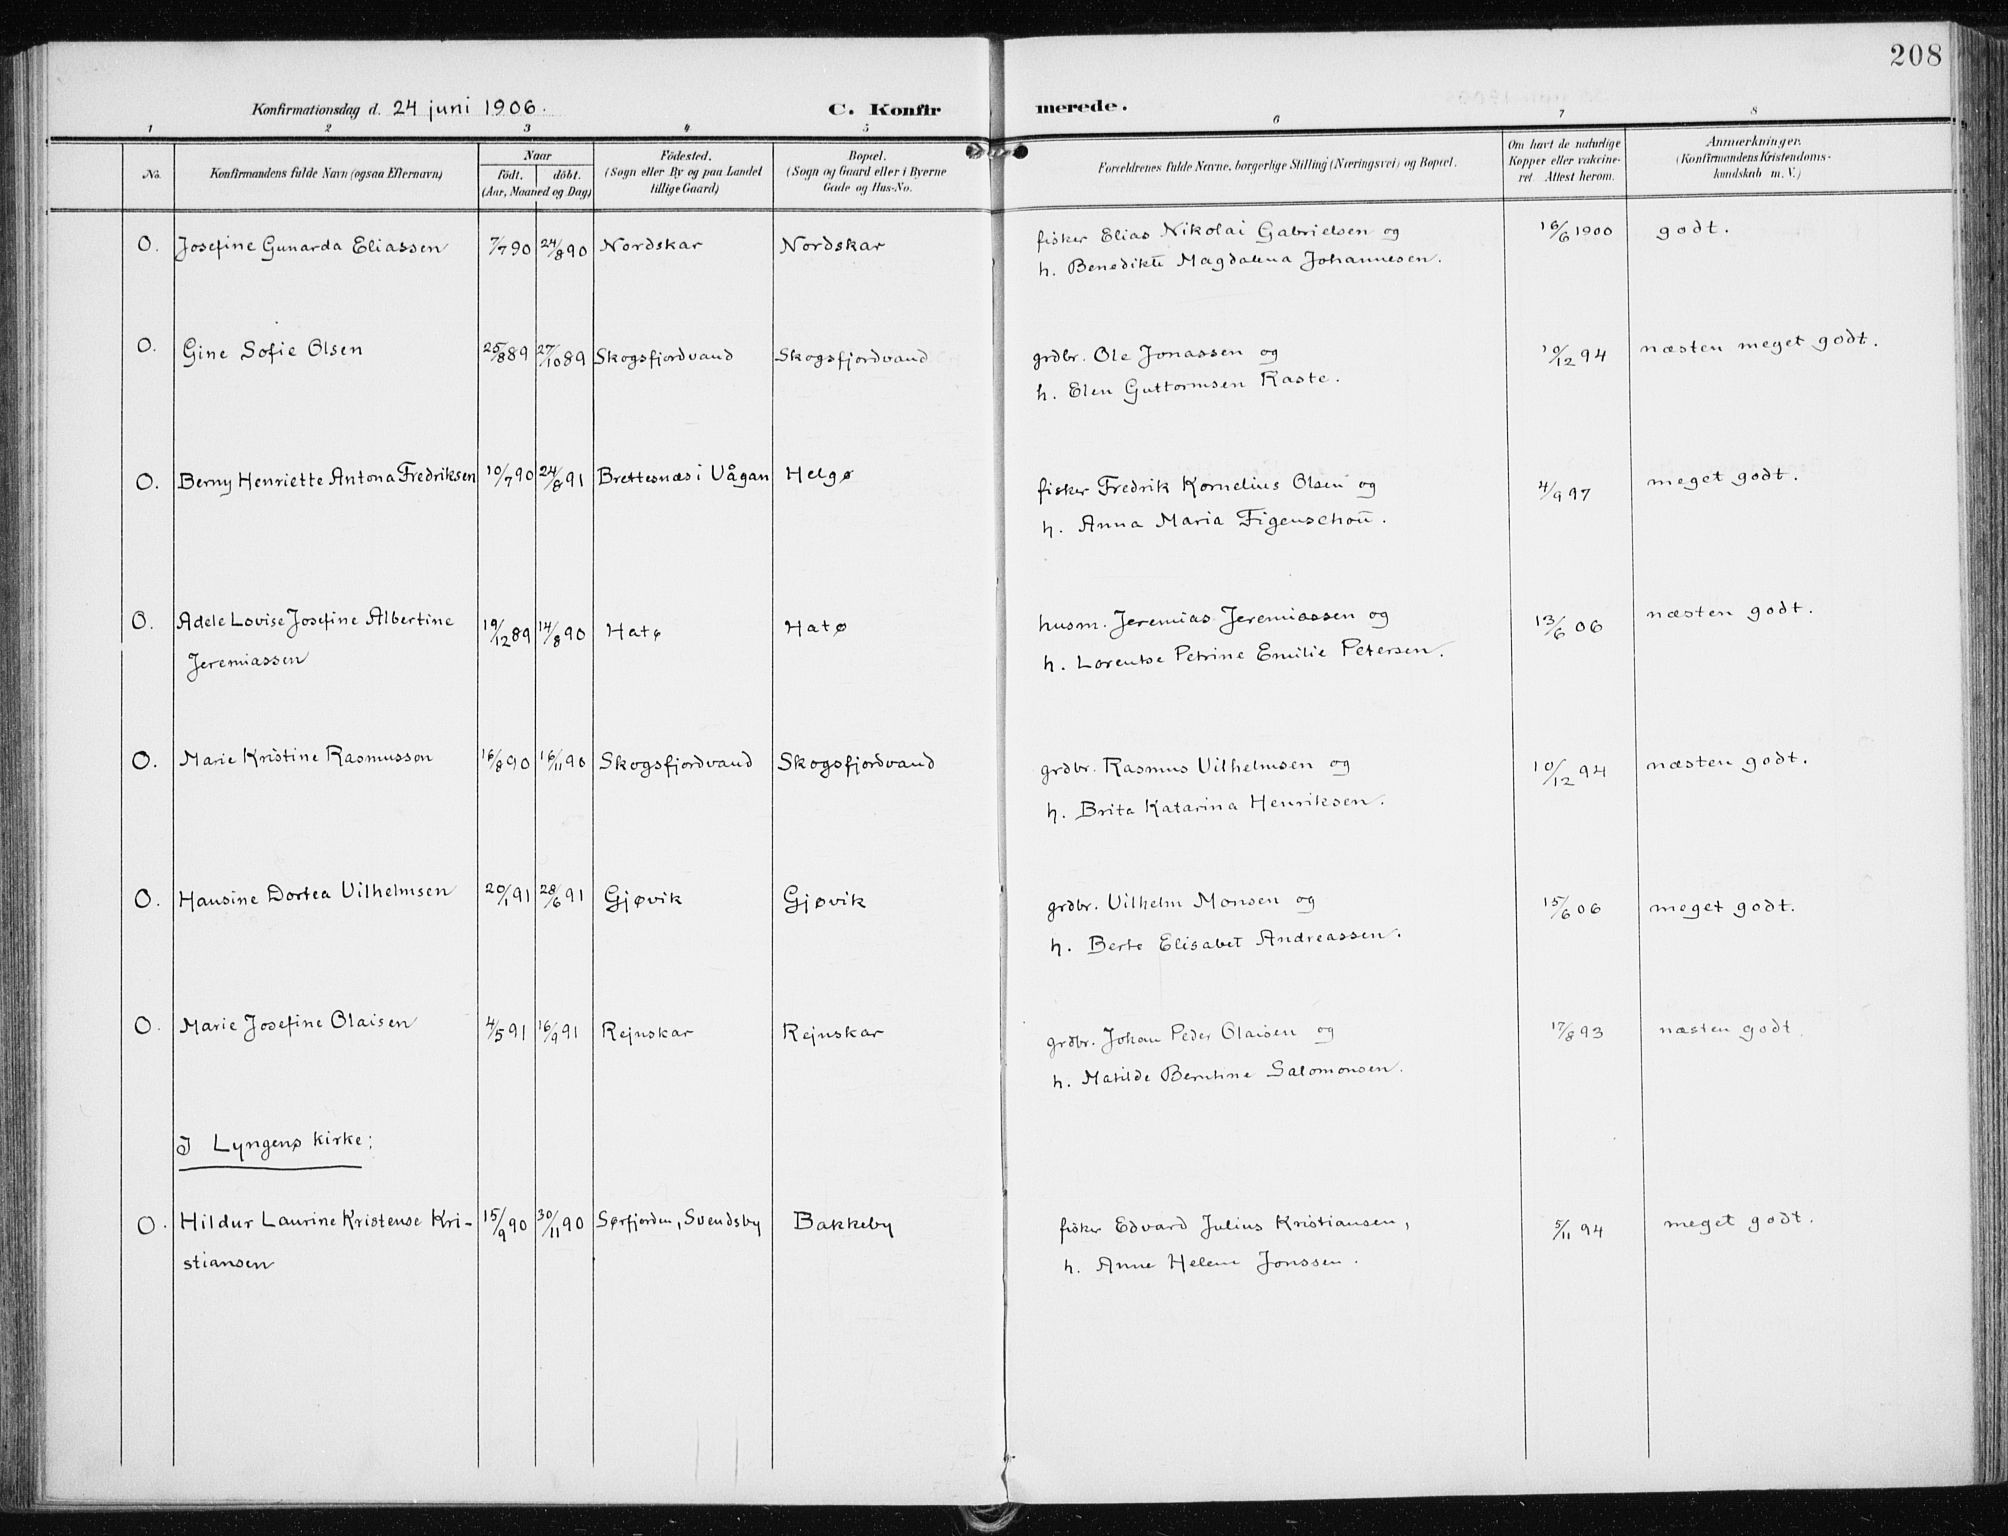 208
Konfirmationsdag d. 24 juni 1906. C. Konfirmerede.
1 2 3 4 5 6 7 8
No. Konfirmandens fulde Navn (ogsaa Efternavn) Naar födt. döbt. (Aar, Maaned og Dag) Födested. (Sogn eller By og paa Landet tillige Gaard) Bopæl. (Sogn og Gaard eller i Byerne Gade og Hus-No. Forældrenes fulde Navne, borgerlige Stilling (Næringsvei) og Bopæl. Om havt de naturlige Kopper eller vakcineret. Attest herom. Anmærkninger. (Konfirmandens Kristendomskundskab m. V.)
O. Josefine Gunarda Eliassen 7/7 90 24/8 90 Nordskar Nordskar fisker Elias Nikolai Gabrielsen og 16/6 1900 godt.
h. Benedikte Magdalena Johannesen.
O. Gine Sofie Olsen 25/8 89 27/10 89 Skogsfjordvand Skogsfjordvand grdbr. Ole Jonassen og 10/12 94 næsten meget godt.
h. Elen Guttormsen Raste.
O. Berny Henriette Antona Fredriksen 10/7 90 24/8 91 Brettesnæs i Vågan Helgø fisker Fredrik Kornelius Olsen og 4/9 97 meget godt.
h. Anna Maria Figenschou.
O. Adele Lovise Josefine Albertine 19/12 89 14/8 90 Hatø Hatø husm. Jeremias Jeremiassen og 13/6 06 næsten godt.
Jeremiassen h. Lorentse Petrine Emilie Petersen.
O. Marie Kristine Rasmusson 16/8 90 16/11 90 Skogsfjordvand Skogsfjordvand grdbr. Rasmus Vilhelmsen og 10/12 94 næsten godt.
h. Brita Katarina Henriksen.
O. Hansine Dortea Vilhelmsen 20/1 91 28/6 91 Gjøvik Gjøvik grdbr. Vilhelm Monsen og 15/6 06 meget godt.
h. Berte Elisabet Andreassen.
O. Marie Josefine Olaisen 4/5 91 16/9 91 Rejnskar Rejnskar grdbr. Johan Peder Olaisen og 17/8 93 næsten godt.
h. Matilde Berntine Salomonsen.
I Lyngens kirke:
O. Hildur Laurine Kristense Kri- 15/9 90 30/11 90 Sørfjorden, Svendsby Bakkeby fisker Edvard Julius Kristiansen, 5/11 94 meget godt.
stiansen h. Anne Helene Jonssen.